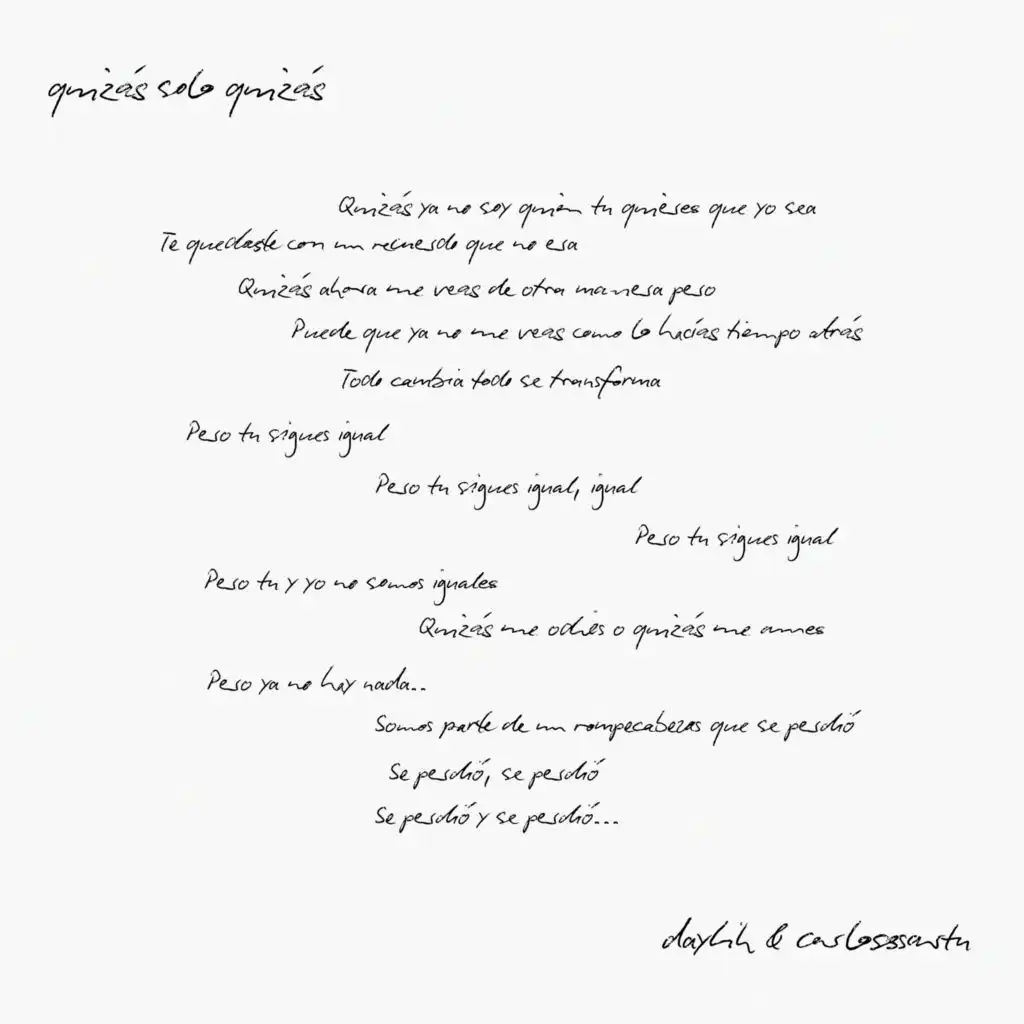 quizás solo quizás
Quizás ya no soy quien tu quieres que yo sea
Te quedaste con un recuerdo que no era
Quizás ahora me veas de otra manera pero
Puede que ya no me veas como lo hacías tiempo atrás
Todo cambia todo se transforma
Pero tu sigues igual
Pero tu sigues igual, igual
Pero tu sigues igual
Pero tu y yo no somos iguales
Quizás me odies o quizás me ames
Pero ya no hay nada..
Somos parte de un rompecabezas que se perdió
Se perdió, se perdió
Se perdió y se perdió...
&